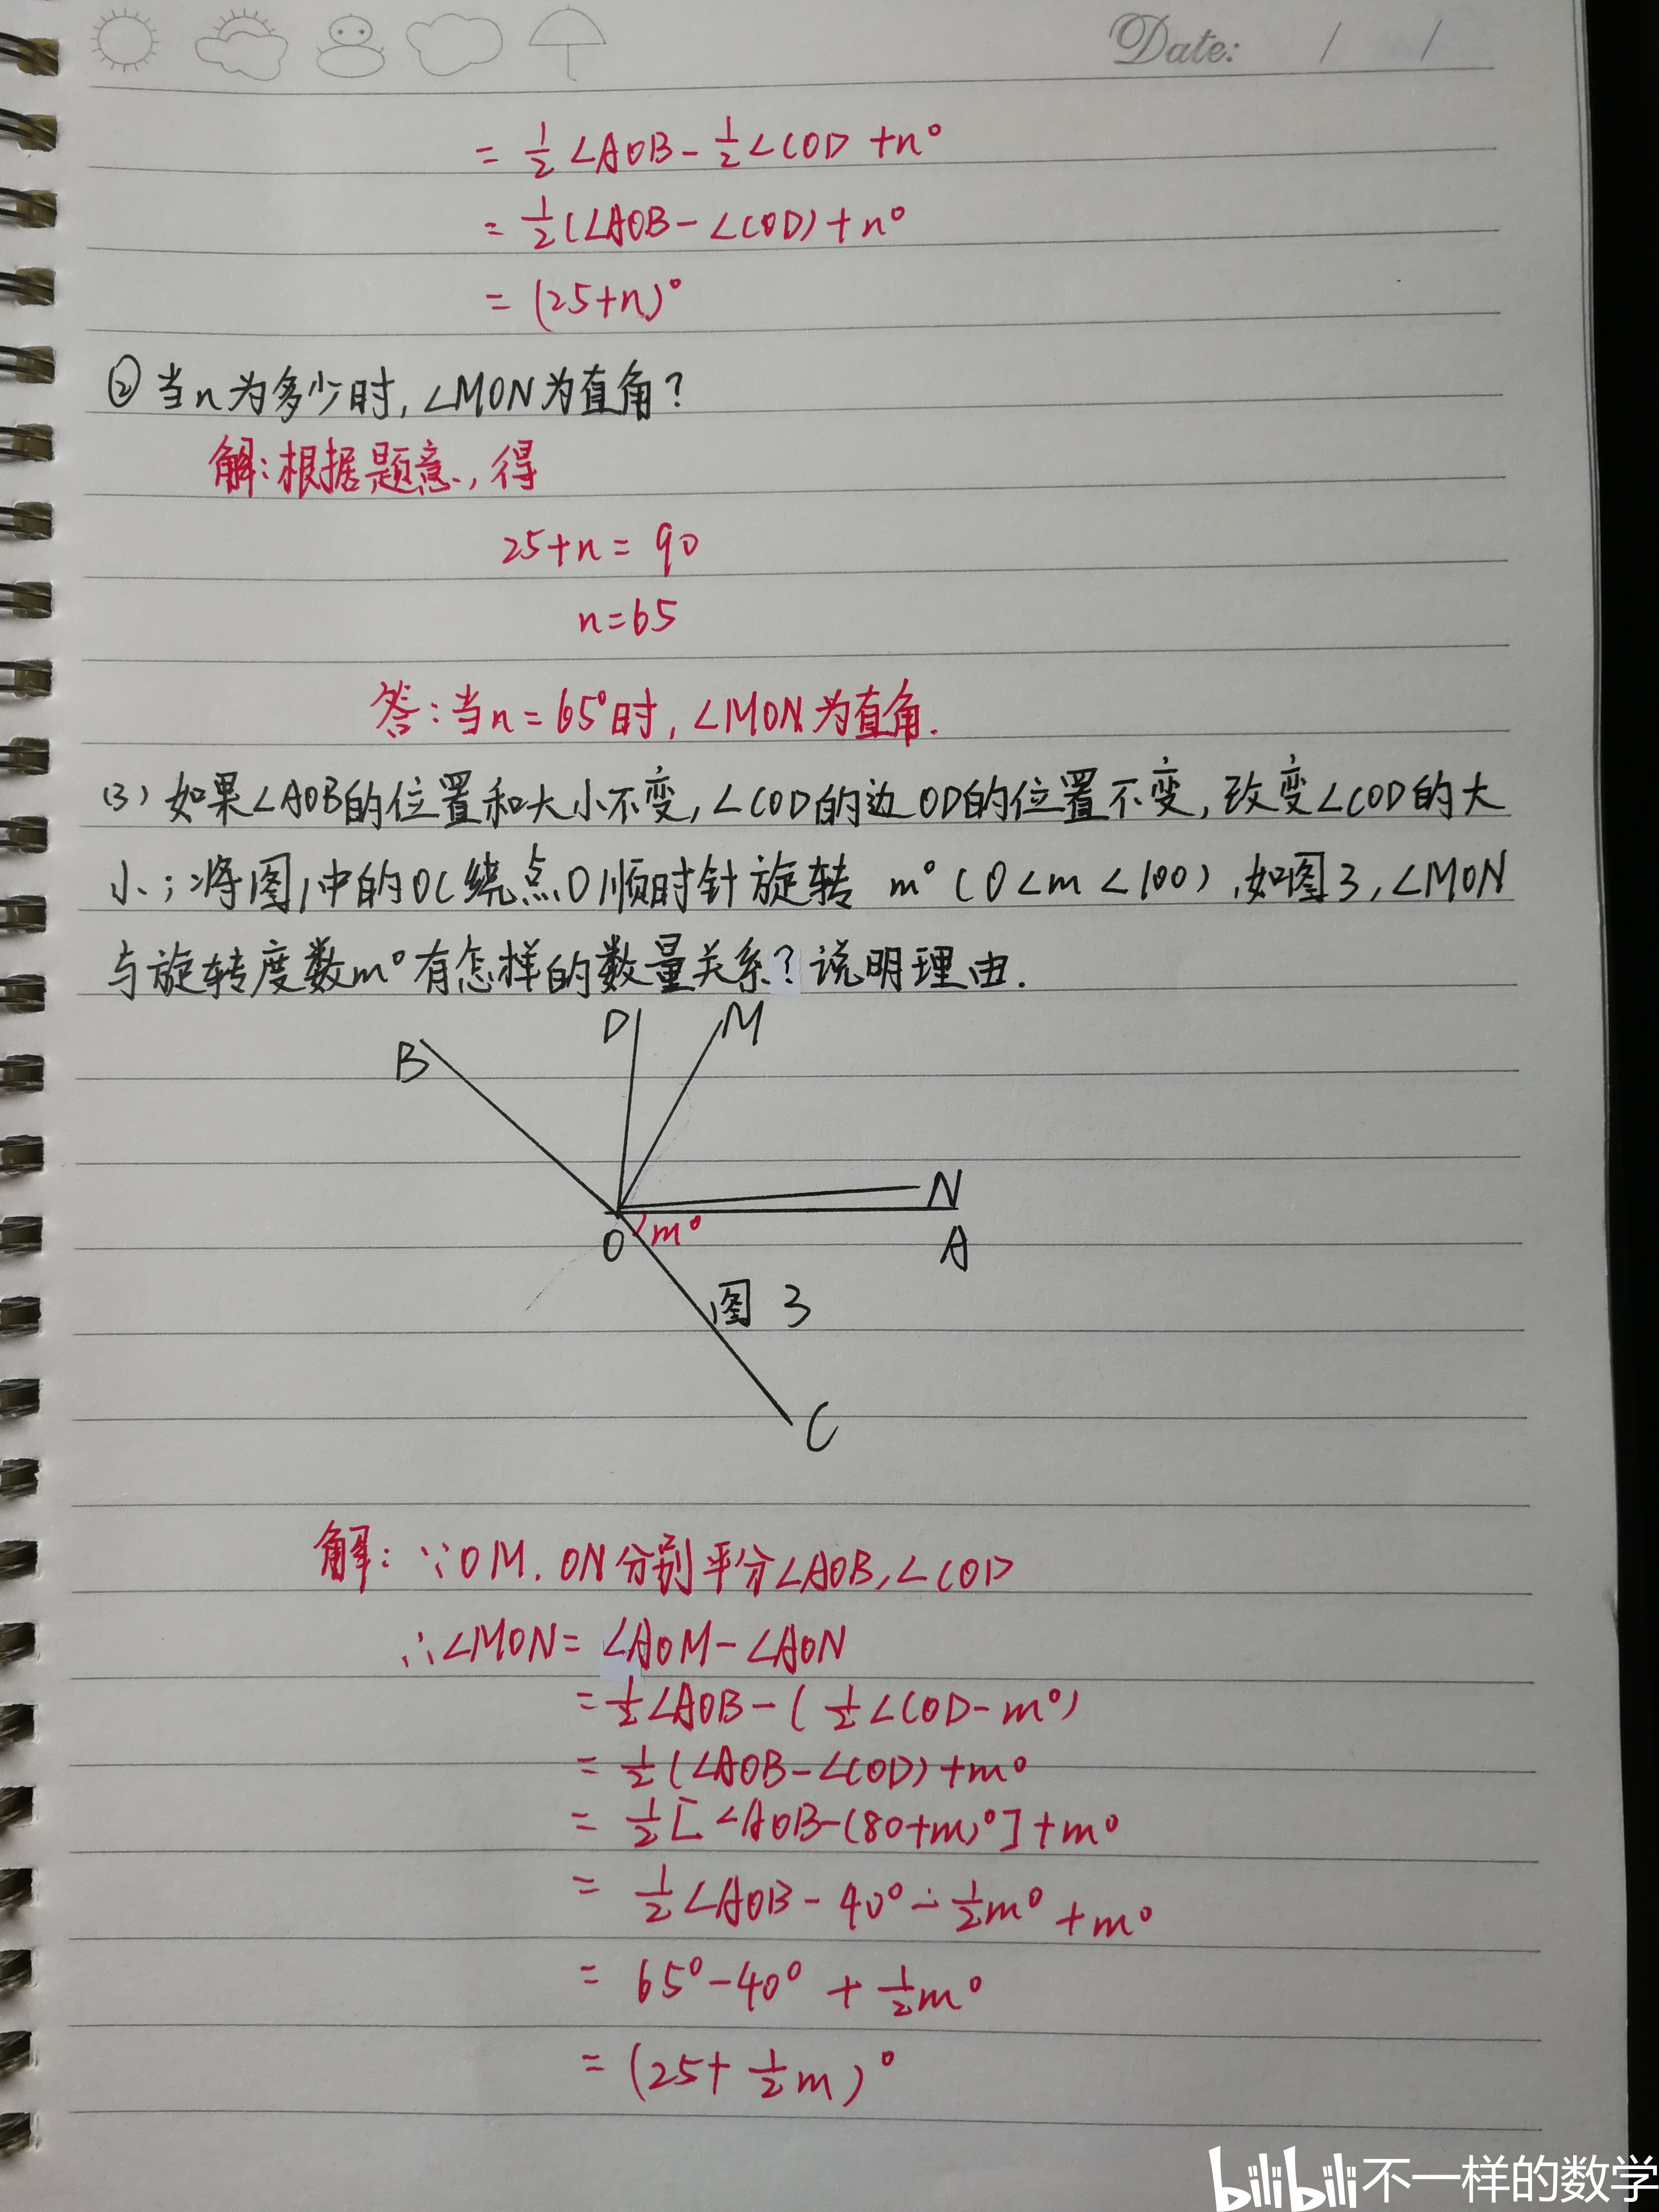 Date: / /
= 1/2∠AOB - 1/2∠COD + n°
= 1/2(∠AOB - ∠COD) + n°
= (25+n)°
② 当n为多少时, ∠MON为直角?
解: 根据题意, 得
25+n = 90
n=65
答: 当n=65°时, ∠MON为直角.
(3) 如果∠AOB的位置和大小不变, ∠COD的边OD的位置不变, 改变∠COD的大
小; 将图1中的OC绕点O顺时针旋转 m° (0<m<100), 如图3, ∠MON
与旋转度数m°有怎样的数量关系? 说明理由.
D M
B
N
O m° A
图 3
C
解: ∵OM. ON分别平分∠AOB, ∠COD
∴∠MON = ∠AOM - ∠AON
= 1/2∠AOB - (1/2∠COD - m°)
= 1/2(∠AOB - ∠COD) + m°
= 1/2[∠AOB-(80+m)°] + m°
= 1/2∠AOB - 40° - 1/2m° + m°
= 65° - 40° + 1/2m°
= (25 + 1/2m)°
bilibili 不一样的数学